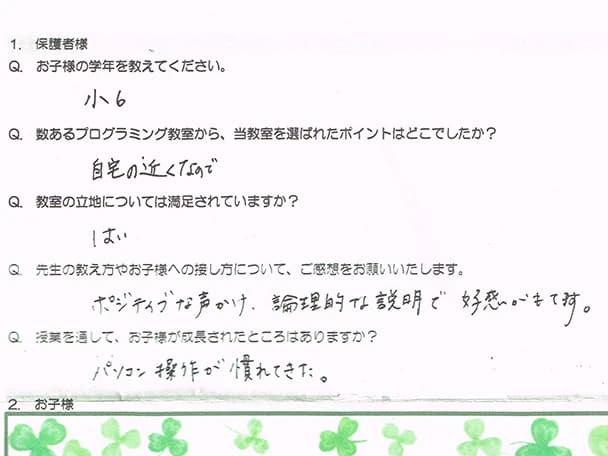 1. 保護者様
Q. お子様の学年を教えてください。
小6
Q. 数あるプログラミング教室から、当教室を選ばれたポイントはどこでしたか？
自宅の近くなので
Q. 教室の立地については満足されていますか？
はい
Q. 先生の教え方やお子様への接し方について、ご感想をお願いいたします。
ポジティブな声かけ、論理的な説明で 好感がもてます。
Q. 授業を通して、お子様が成長されたところはありますか？
パソコン操作が慣れてきた。
2. お子様